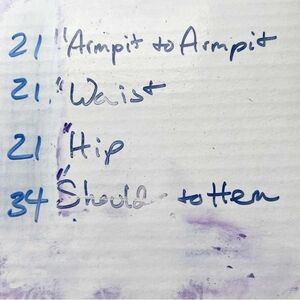 21" Armpit to Armpit
21" Waist
21" Hip
34" Should to Hem